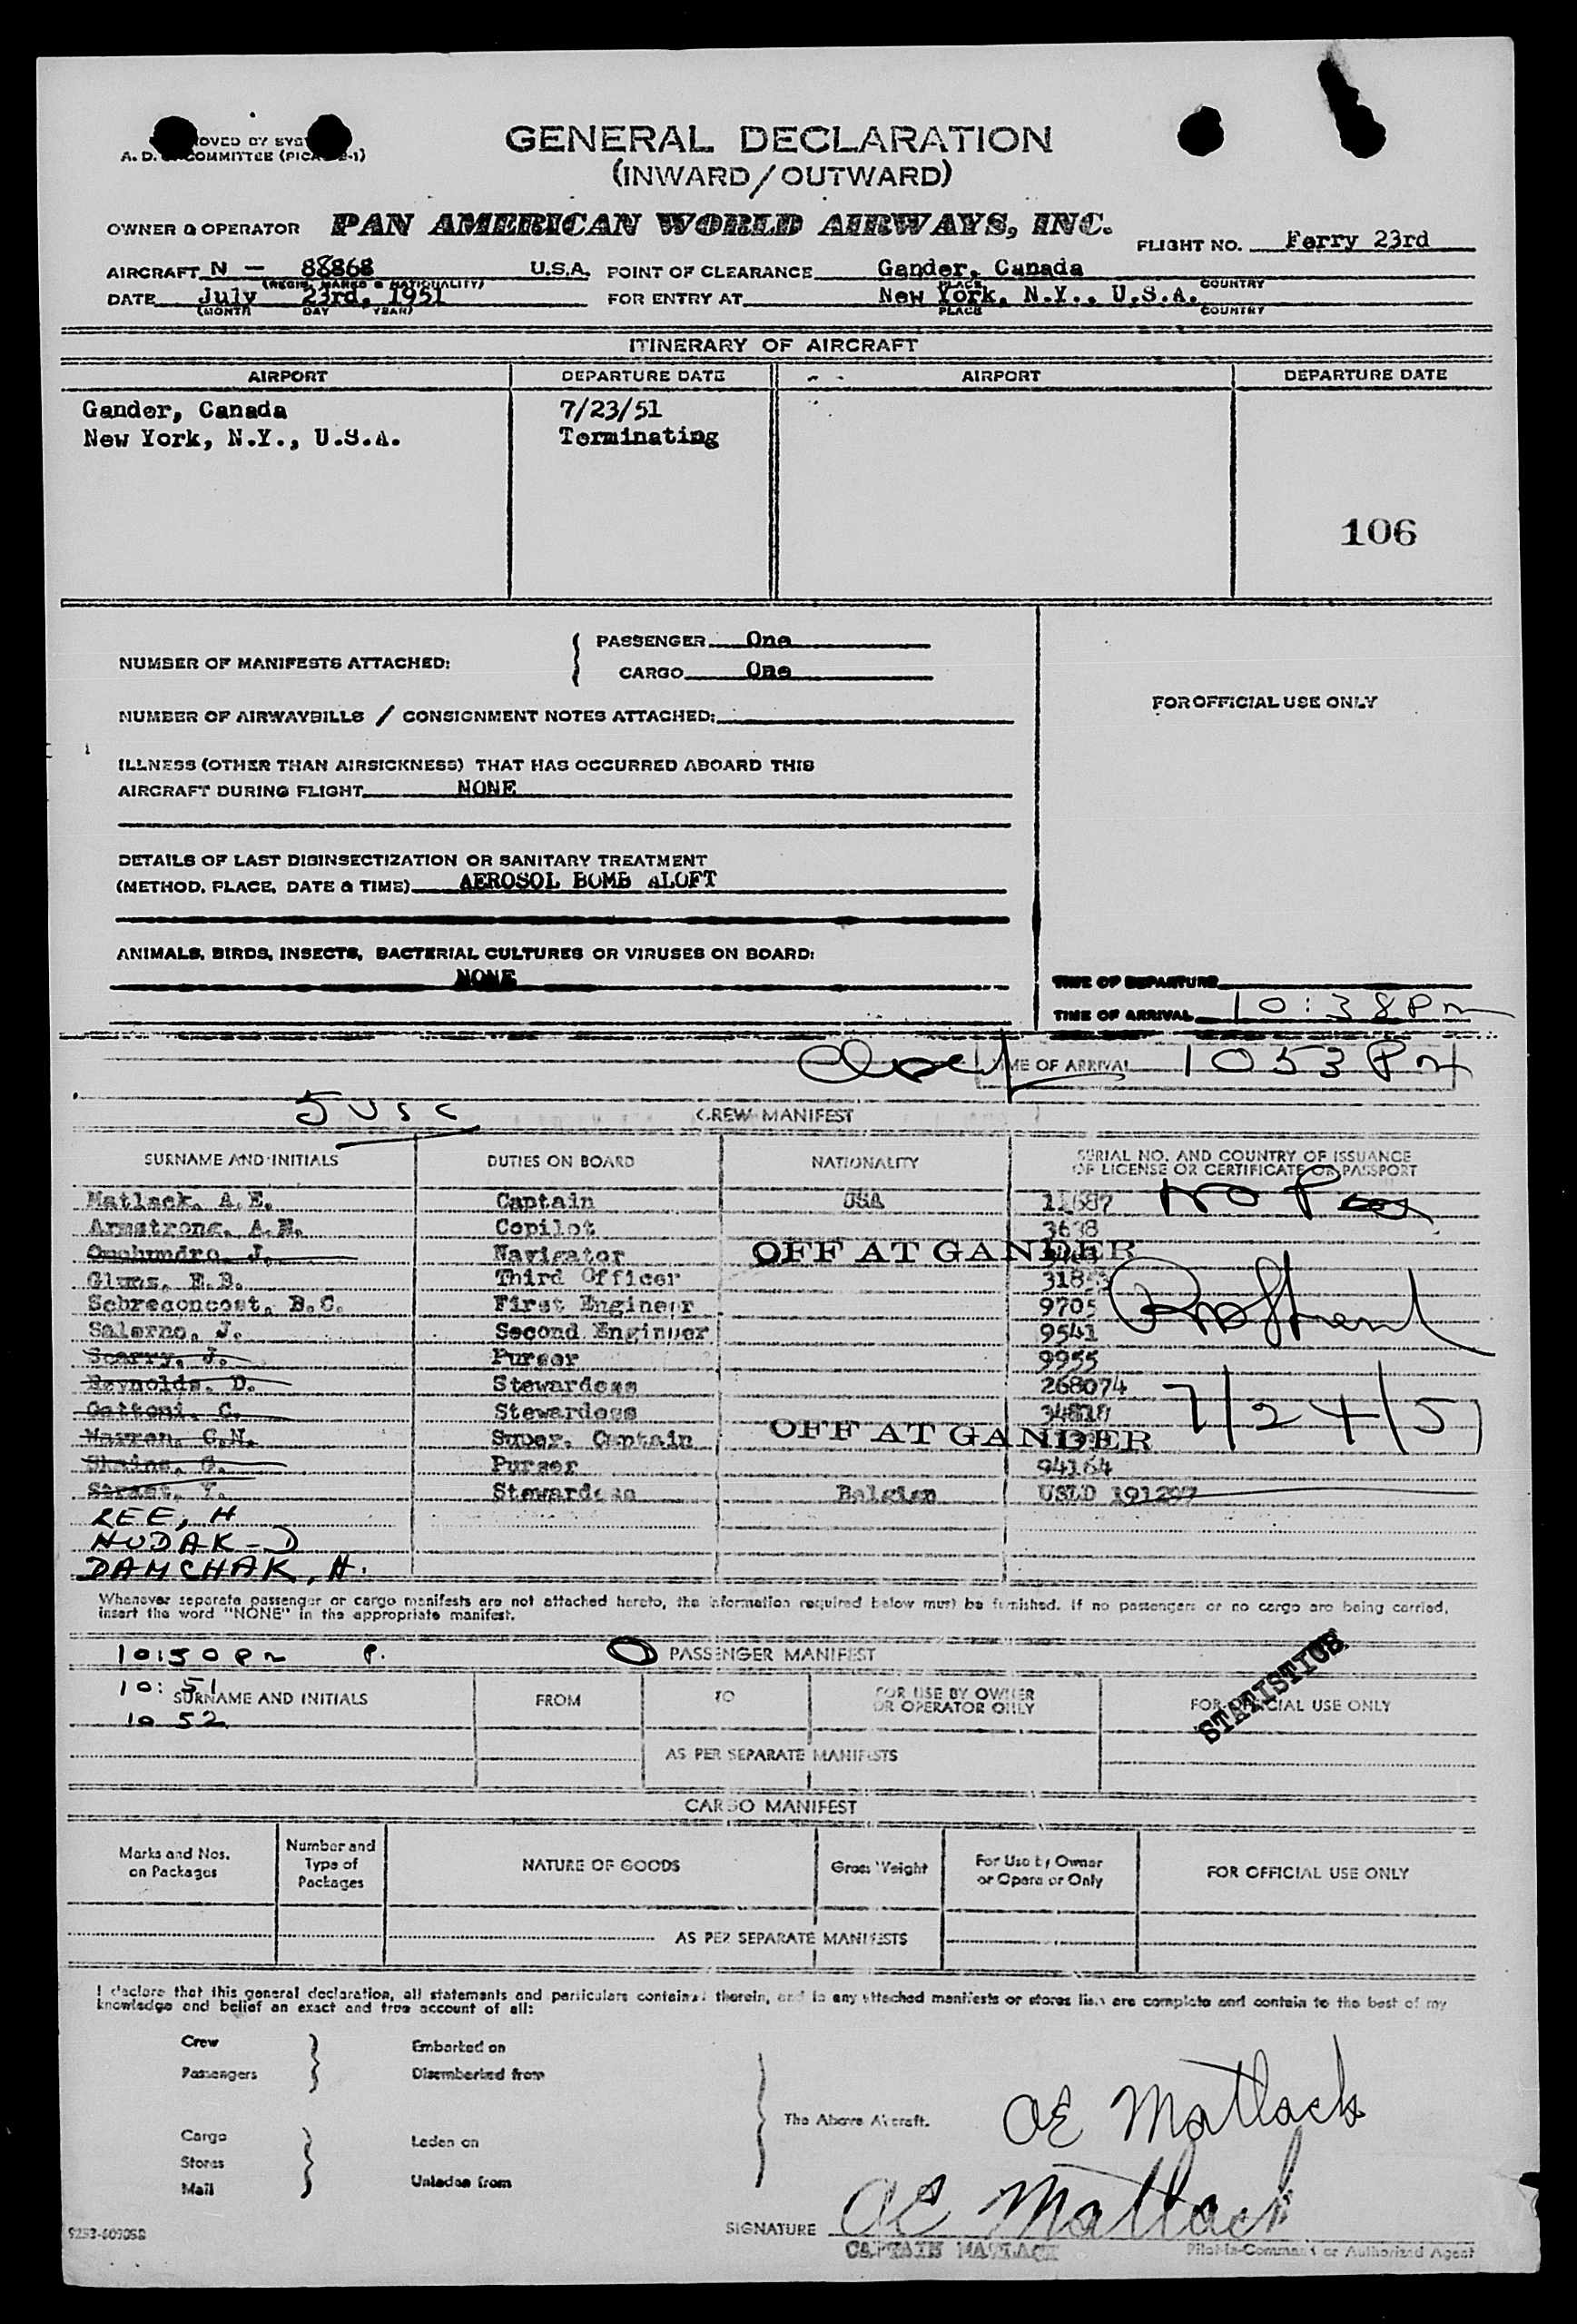 GENERAL DECLARATION
A. D. COMMITTEE
(INWARD/OUTWARD)
OWNER & OPERATOR PAN AMERICAN WORLD AIRWAYS, INC. FLIGHT NO. Ferry 23rd
AIRCRAFT N - 88868 U.S.A. POINT OF CLEARANCE Gander, Canada
(REGIS. MARKS & NATIONALITY) PLACE COUNTRY
DATE July 23rd, 1951 FOR ENTRY AT New York, N.Y., U.S.A.
(MONTH DAY YEAR) PLACE COUNTRY
ITINERARY OF AIRCRAFT
AIRPORT DEPARTURE DATE AIRPORT DEPARTURE DATE
Gander, Canada 7/23/51
New York, N.Y., U.S.A. Terminating
106
NUMBER OF MANIFESTS ATTACHED: PASSENGER One
CARGO One
FOR OFFICIAL USE ONLY
NUMBER OF AIRWAYBILLS / CONSIGNMENT NOTES ATTACHED:
ILLNESS (OTHER THAN AIRSICKNESS) THAT HAS OCCURRED ABOARD THIS
AIRCRAFT DURING FLIGHT NONE
DETAILS OF LAST DISINSECTIZATION OR SANITARY TREATMENT
(METHOD, PLACE, DATE & TIME) AEROSOL BOMB ALOFT
ANIMALS, BIRDS, INSECTS, BACTERIAL CULTURES OR VIRUSES ON BOARD:
NONE
TIME OF DEPARTURE
TIME OF ARRIVAL 10:38 Pm
TIME OF ARRIVAL 10 53 PM
5 USC
CREW MANIFEST
SURNAME AND INITIALS DUTIES ON BOARD NATIONALITY SERIAL NO. AND COUNTRY OF ISSUANCE
OF LICENSE OR CERTIFICATE OR PASSPORT
Matlack, A.E. Captain USA No
Armstrong, A.H. Copilot
Omohundro, J. Navigator OFF AT GANDER
Glums, E.B. Third Officer
Sobreconcost, B.C. First Engineer 9705
Salerno, J. Second Engineer 9541
Scarry, J. Purser 9955
Reynolds, D. Stewardess 268074
7/24/51
Gattoni, C. Stewardess
Warren, C.N. Super. Captain OFF AT GANDER
Skains, G. Purser 94164
Straet, Y. Stewardess Belgian USLD 191297
LEE, H
HUDAK - D
DAMCHAK, H.
Whenever separate passenger or cargo manifests are not attached hereto, the information required below must be furnished. If no passengers or no cargo are being carried,
insert the word "NONE" in the appropriate manifest.
10:50 Pm P. 0 PASSENGER MANIFEST
10:51
SURNAME AND INITIALS FROM TO FOR USE BY OWNER
OR OPERATOR ONLY FOR OFFICIAL USE ONLY
STATISTICS
10 52
AS PER SEPARATE MANIFESTS
CARGO MANIFEST
Marks and Nos.
on Packages
Number and
Type of
Packages
NATURE OF GOODS
Gross Weight
For Use by Owner
or Operator Only
FOR OFFICIAL USE ONLY
AS PER SEPARATE MANIFESTS
I declare that this general declaration, all statements and particulars contained therein, and in any attached manifests or stores lists are complete and contain to the best of my
knowledge and belief an exact and true account of all:
Crew Embarked on
Passengers Disembarked from
The Above Aircraft.
AE Matlack
Cargo Laden on
Stores
Mail Unladen from
SIGNATURE AE Matlack
CAPTAIN MATLACK Pilot-in-Command or Authorized Agent